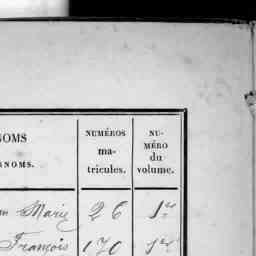 NOMS
RNOMS.
NUMÉROS
ma-
tricules.
NU-
MÉRO
du
volume.
Marie 26 1er
François 170 1er